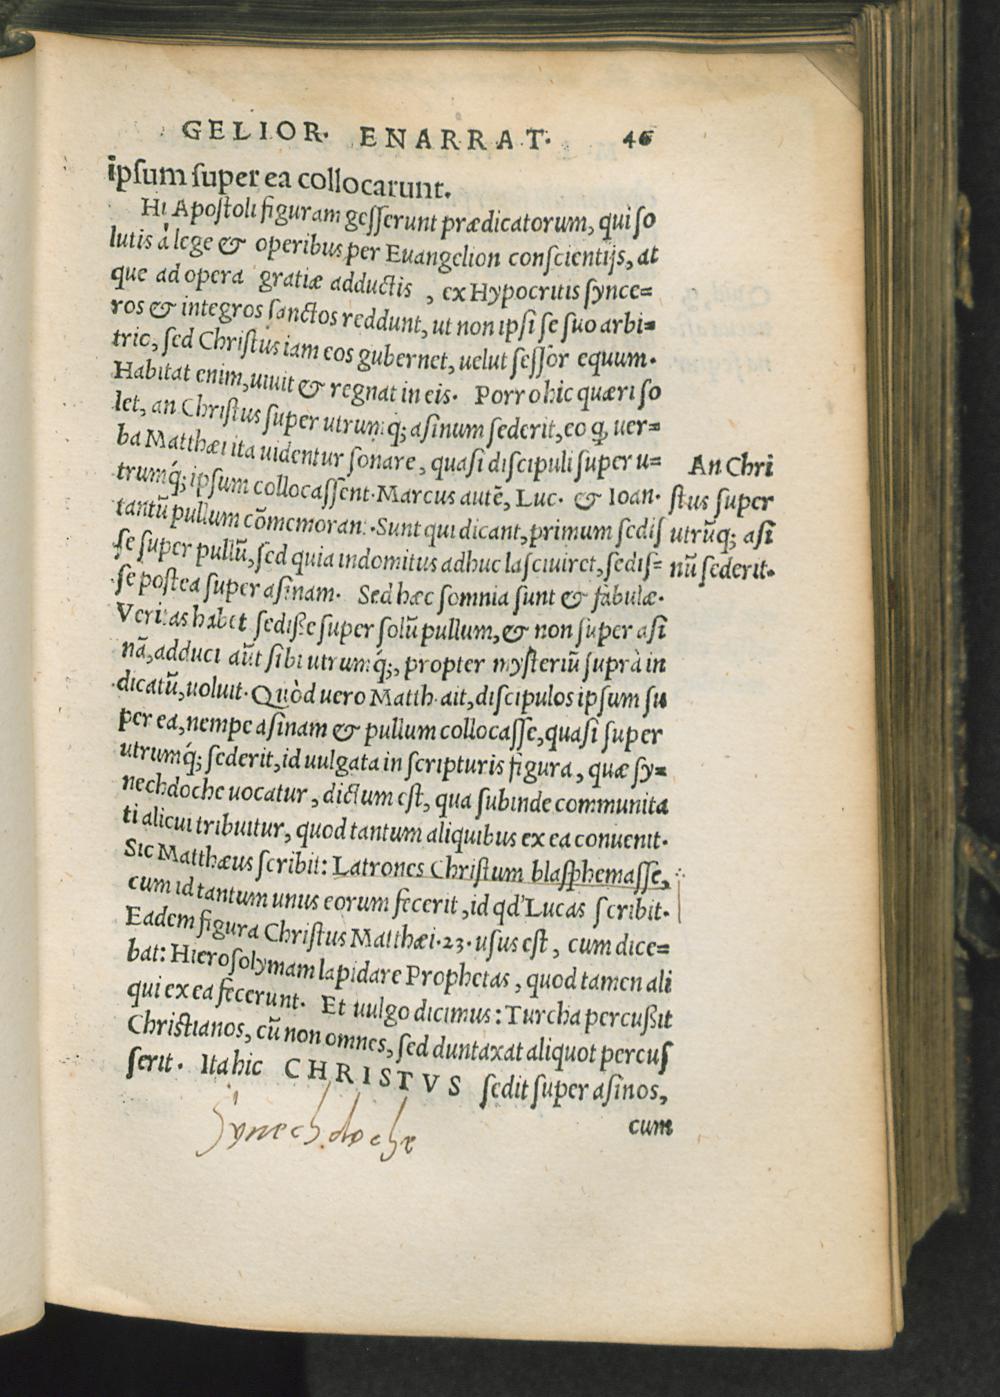 GELIOR. ENARRAT. 46
ipsum super ea collocarunt.
Hi Apostoli figuram gesserunt prædicatorum, qui so
lutis à lege & operibus per Euangelion conscientijs, at
que ad opera gratiæ adductis , ex Hypocritis synce=
ros & integros sanctos reddunt, ut non ipsi se suo arbi=
trio, sed Christus iam eos gubernet, uelut sessor equum.
Habitat enim, uiuit & regnat in eis. Porro hic quæri so
let, an Christus super utrumq; asinum sederit, eo ꝙ uer=
ba Matthæi ita uidentur sonare, quasi discipuli super u=
trumq́; ipsum collocassent. Marcus autē, Luc. & Ioan.
tantū pullum cōmemoran. Sunt qui dicant, primum sedis
se super pullū, sed quia indomitus adhuc lasciuiret, sedis=
se postea super asinam. Sed hæc somnia sunt & fabulæ.
Veritas habet sedisse super solū pullum, & non super asi
nā, adduci aūt sibi utrumq́;, propter mysteriū suprà in
dicatū, uoluit. Quòd uero Matth. ait, discipulos ipsum su
per ea, nempe asinam & pullum collocasse, quasi super
utrumq́; sederit, id uulgata in scripturis figura, quæ sy=
nechdoche uocatur, dictum est, qua subinde communita
ti alicui tribuitur, quod tantum aliquibus ex ea conuenit.
Sic Matthæus scribit: Latrones Christum blasphemasse,
cum id tantum unus eorum fecerit, id qd' Lucas scribit.
Eadem figura Christus Matthæi. 23. usus est, cum dice=
bat: Hierosolymam lapidare Prophetas, quod tamen ali
qui ex ea fecerunt. Et uulgo dicimus: Turcha percußit
Christianos, cū non omnes, sed duntaxat aliquot percus
serit. Ita hic CHRISTVS sedit super asinos,
cum
An Chri
stus super
utrūq; asi
nū sederit.
Synechdoche